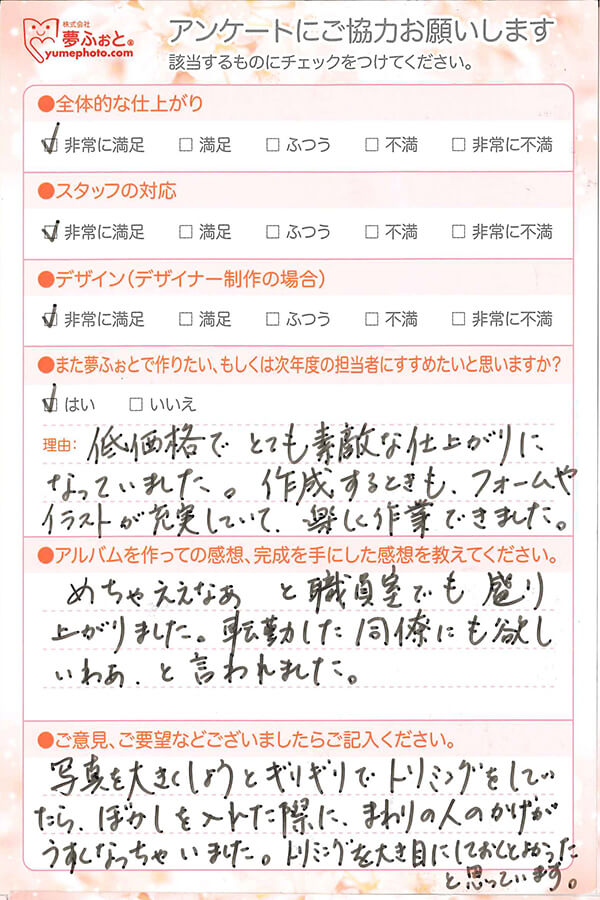 株式会社
夢ふぉと®
yumephoto.com
アンケートにご協力お願いします
該当するものにチェックをつけてください。
●全体的な仕上がり
☑ 非常に満足 □ 満足 □ ふつう □ 不満 □ 非常に不満
●スタッフの対応
☑ 非常に満足 □ 満足 □ ふつう □ 不満 □ 非常に不満
●デザイン(デザイナー制作の場合)
☑ 非常に満足 □ 満足 □ ふつう □ 不満 □ 非常に不満
●また夢ふぉとで作りたい、もしくは次年度の担当者にすすめたいと思いますか?
☑ はい □ いいえ
理由: 低価格で とても素敵な仕上がりに
なっていました。作成するときも、フォームや
イラストが充実していて、楽しく作業できました。
●アルバムを作っての感想、完成を手にした感想を教えてください。
めちゃええなぁ と職員室でも盛り
上がりました。転勤した同僚にも欲し
いわぁ、と言われました。
●ご意見、ご要望などございましたらご記入ください。
写真を大きくしようとギリギリでトリミングをしてい
たら、ぼかしを入れた際に、まわりの人のかげが
うすくなっちゃいました。トリミングを大き目にしておくとよかった
と思っています。